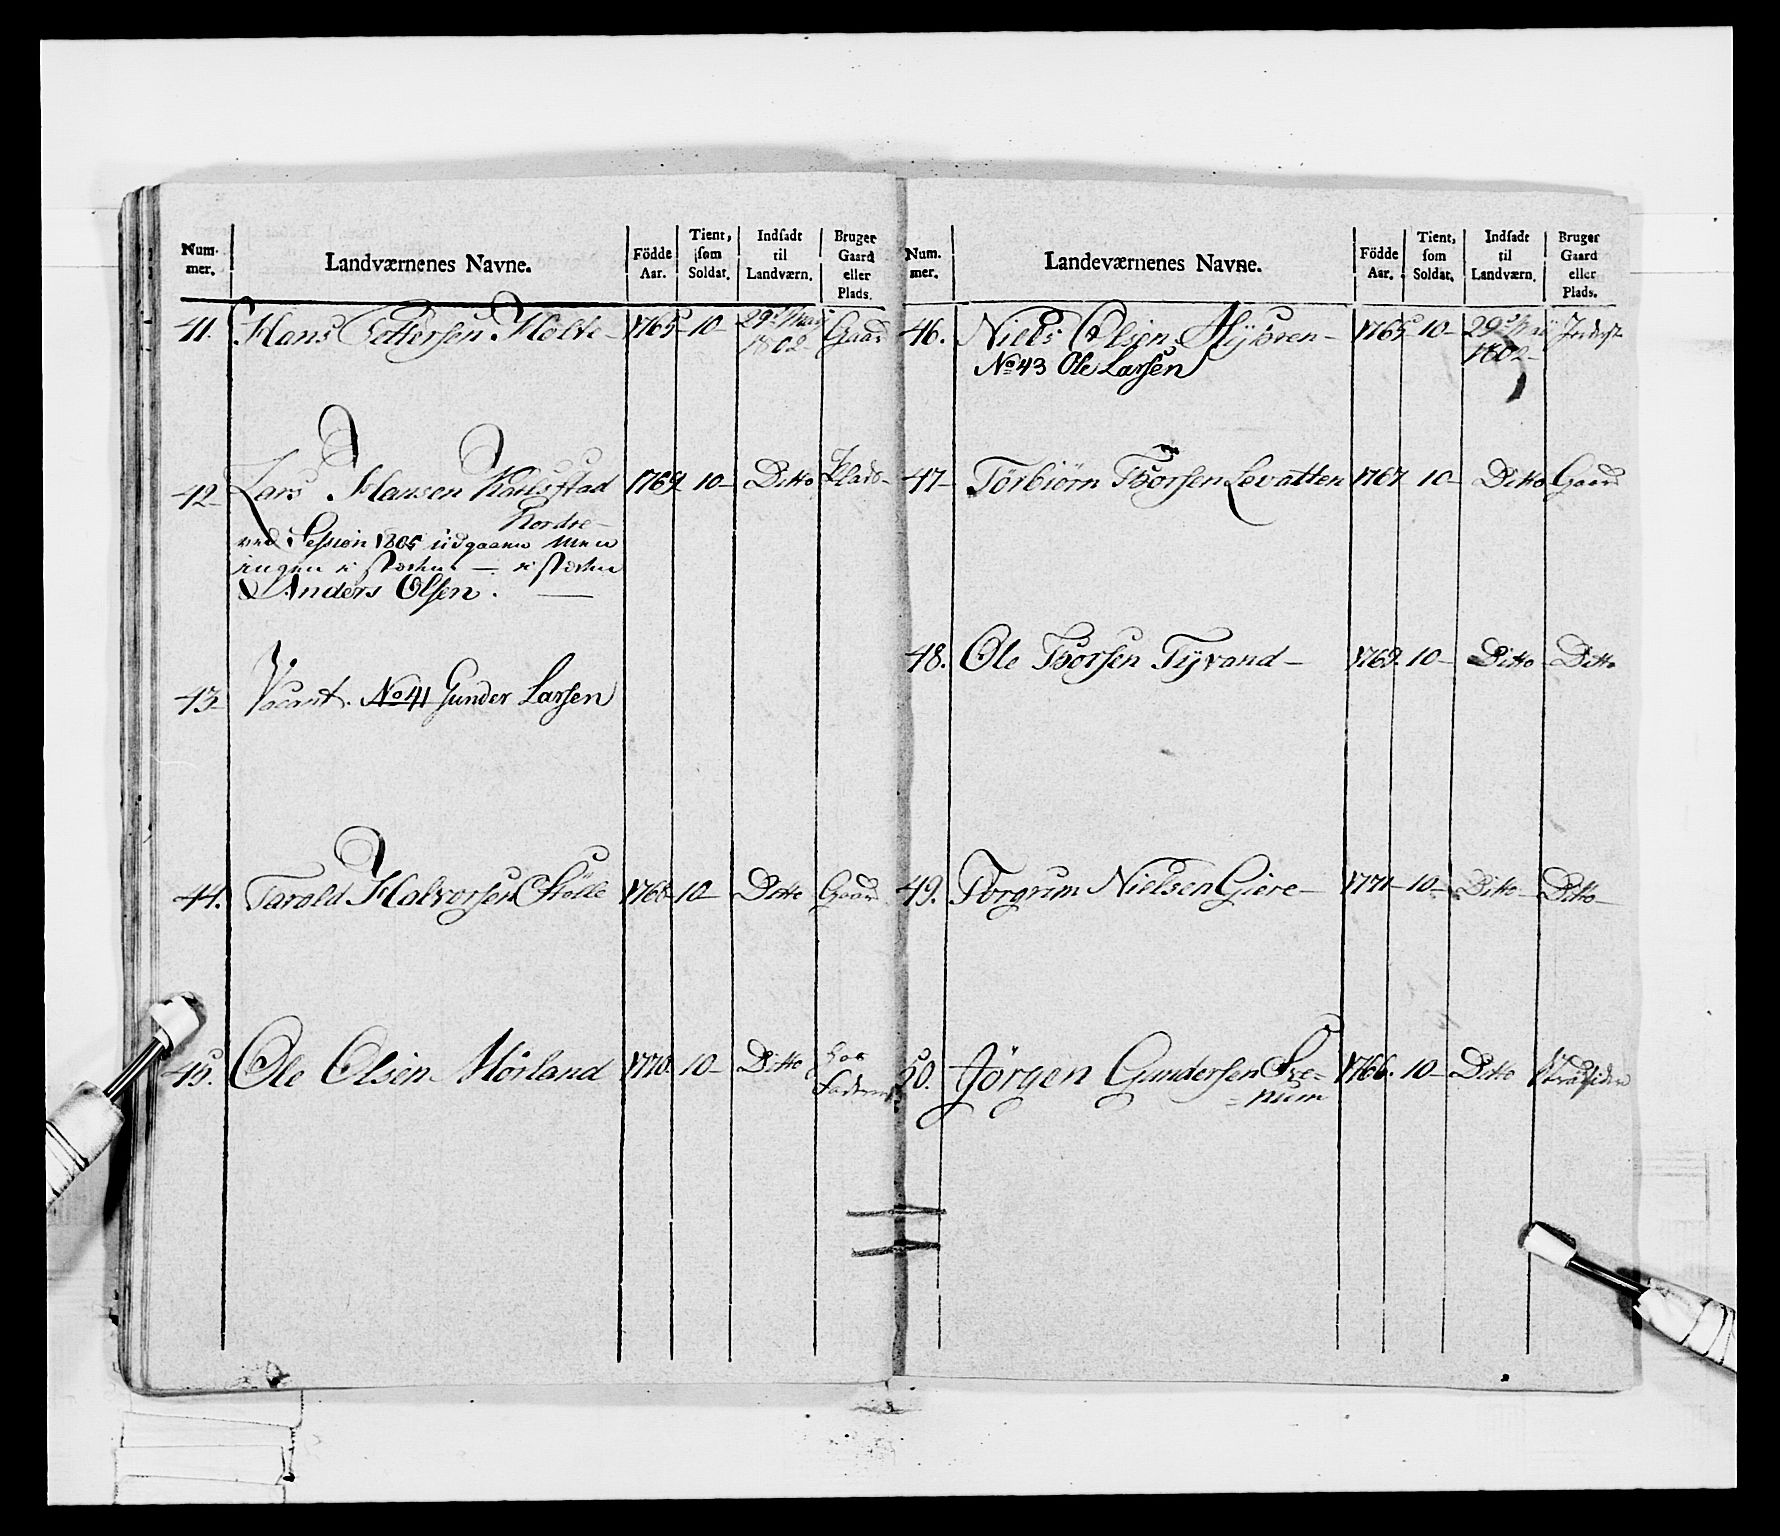 Num-
mer.
Landværnenes Navne.
Födde
Aar.
Tient,
som
Soldat.
Indsadt
til
Landværn.
Bruger
Gaard
eller
Plads.
41. Hans Pettersen Molte - 1765 - 10 - 29de May Gaard
1802 -
42 - Lars Hansen Karlsstad 1769 - 10 - Ditto Plads -
Nordre -
ved Session 1805 udgaaen
Anders Olsen. —
43 - Vacant. No 41 Gunder Larsen
44. Tarald Halvorsen Stølle 1768 - 10 - Ditto Gaard
45. Ole Olsen Hörland 1770. 10 - Ditto hos
Faderen
Num.
mer.
Landeværnenes Navne.
Födde
Aar.
Tient,
som
Soldat.
Indsadt
til
Landværn.
Bruger
Gaard
eller
Plads.
46. Niels Olsen 1765 10 - 29de May Inderst
No 43 Ole Larsen 1802 -
47 - Torbiörn Thorsen Levatten 1767 10 - Ditto Gaard
48. Ole Thorsen Tyvand - 1769. 10 - Ditto - Ditto
49. Torgrim Nielsen Giere - 1771 - 10 - Ditto - Ditto -
50. Jörgen Gundersen Sve- 1766. 10 - Ditto Strandsidder
= num